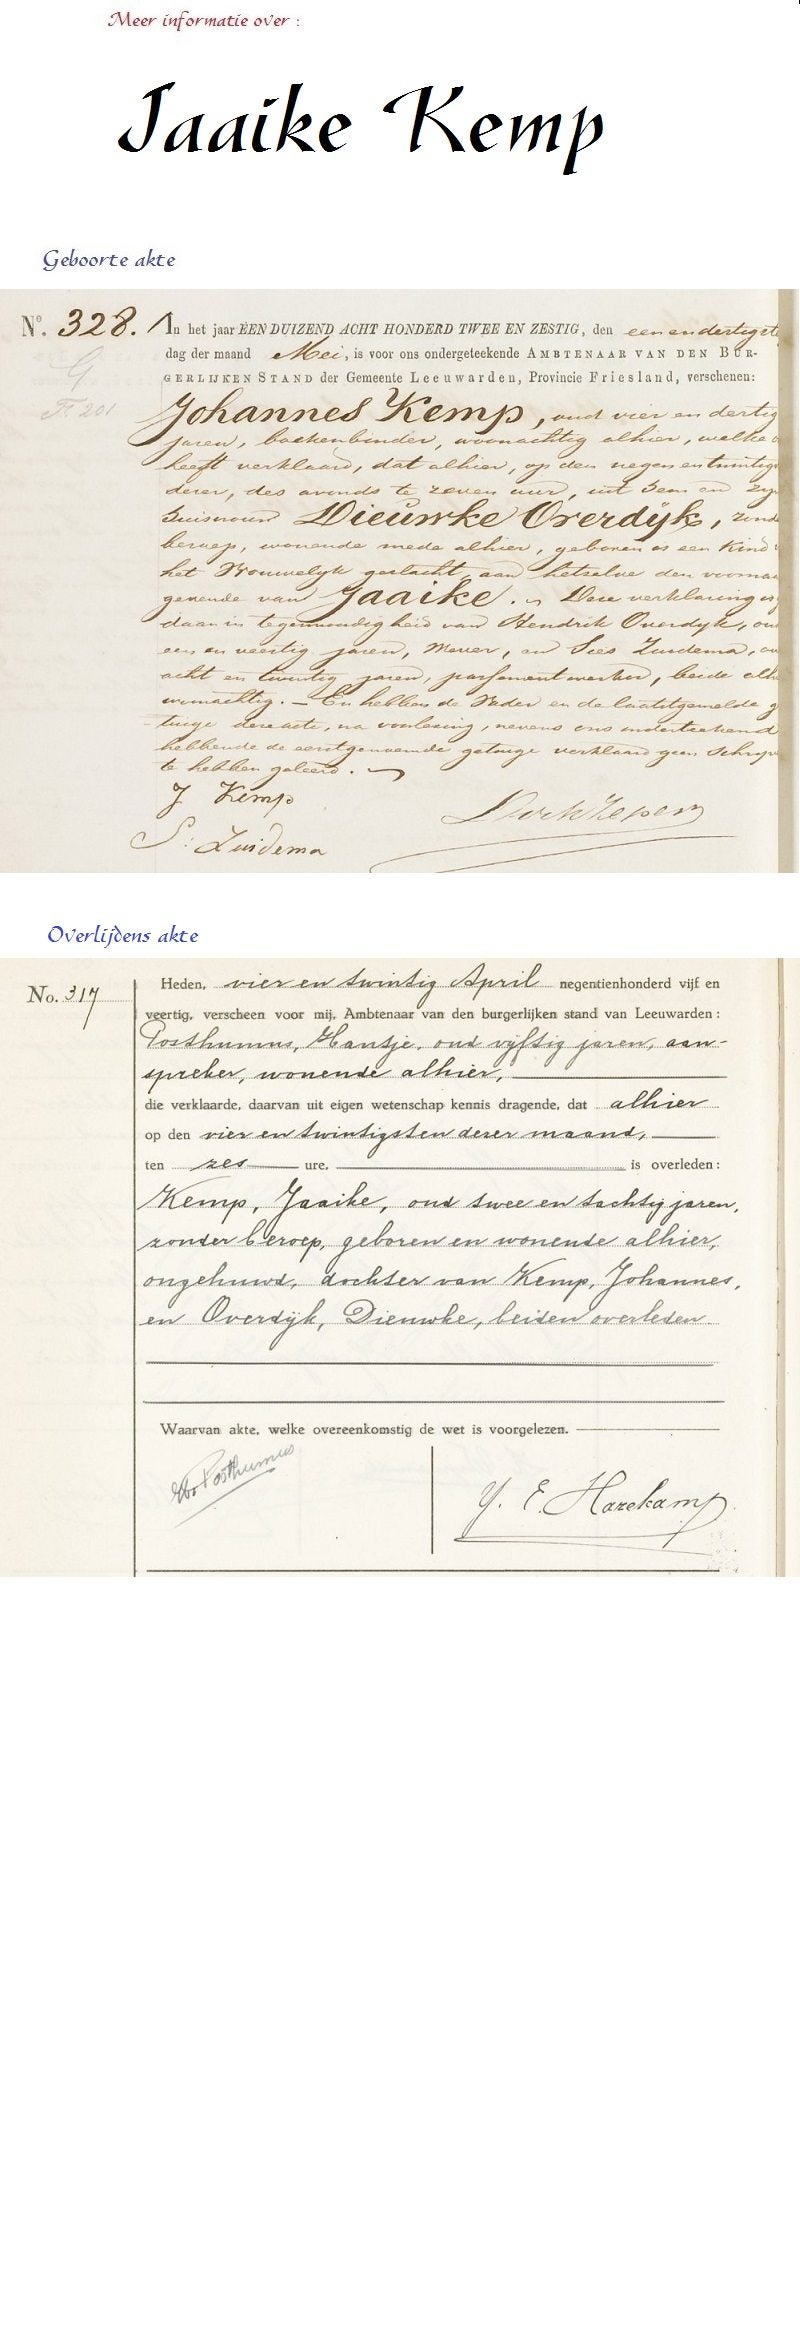 Meer informatie over :
Jaaike Kemp
Geboorte akte
No. 328. In het jaar EEN DUIZEND ACHT HONDERD TWEE EN ZESTIG, den een en dertigste
dag der maand Mei, is voor ons ondergeteekende AMBTENAAR VAN DEN BUR-
GERLIJKEN STAND der Gemeente Leeuwarden, Provincie Friesland, verschenen:
Johannes Kemp, oud vier en dertig
jaren, boekenbinder, woonachtig alhier, welke
heeft verklaard, dat alhier, op den negen en twintig
derer, des avonds te zeven uur, uit hem en zijn
huisvrouw Dieuwke Overdijk, zond
beroep, wonende mede alhier, geboren is een kind
het Vrouwelijk geslacht, aan hetzelve den voornaa
gevende van Jaaike. Deze verklaring is
daan in tegenwoordigheid van Hendrik Overdijk, ou
een en veertig jaren, Wever, en Sees Zuidema, ou
acht en twintig jaren, parkementwerker, beide alh
woonachtig. — En hebben de Vader en de laatstgemelde g
tuige deze acte, na voorlezing, nevens ons onderteekend
hebbende de eerstgenoemde getuige verklaard geen schrijv
te hebben geleerd.
J Kemp
S: Zuidema
Overlijdens akte
No. 317 Heden, vier en twintig April negentienhonderd vijf en
veertig, verscheen voor mij, Ambtenaar van den burgerlijken stand van Leeuwarden:
Posthumus, Hantje, oud vijftig jaren, aan-
spreker, wonende alhier,
die verklaarde, daarvan uit eigen wetenschap kennis dragende, dat alhier
op den vier en twintigsten dezer maand,
ten zes ure, is overleden:
Kemp, Jaaike, oud twee en tachtig jaren,
zonder beroep, geboren en wonende alhier,
ongehuwd, dochter van Kemp, Johannes,
en Overdijk, Dieuwke, beiden overleden
Waarvan akte, welke overeenkomstig de wet is voorgelezen.
Posthumus
Y. E. Hazekamp